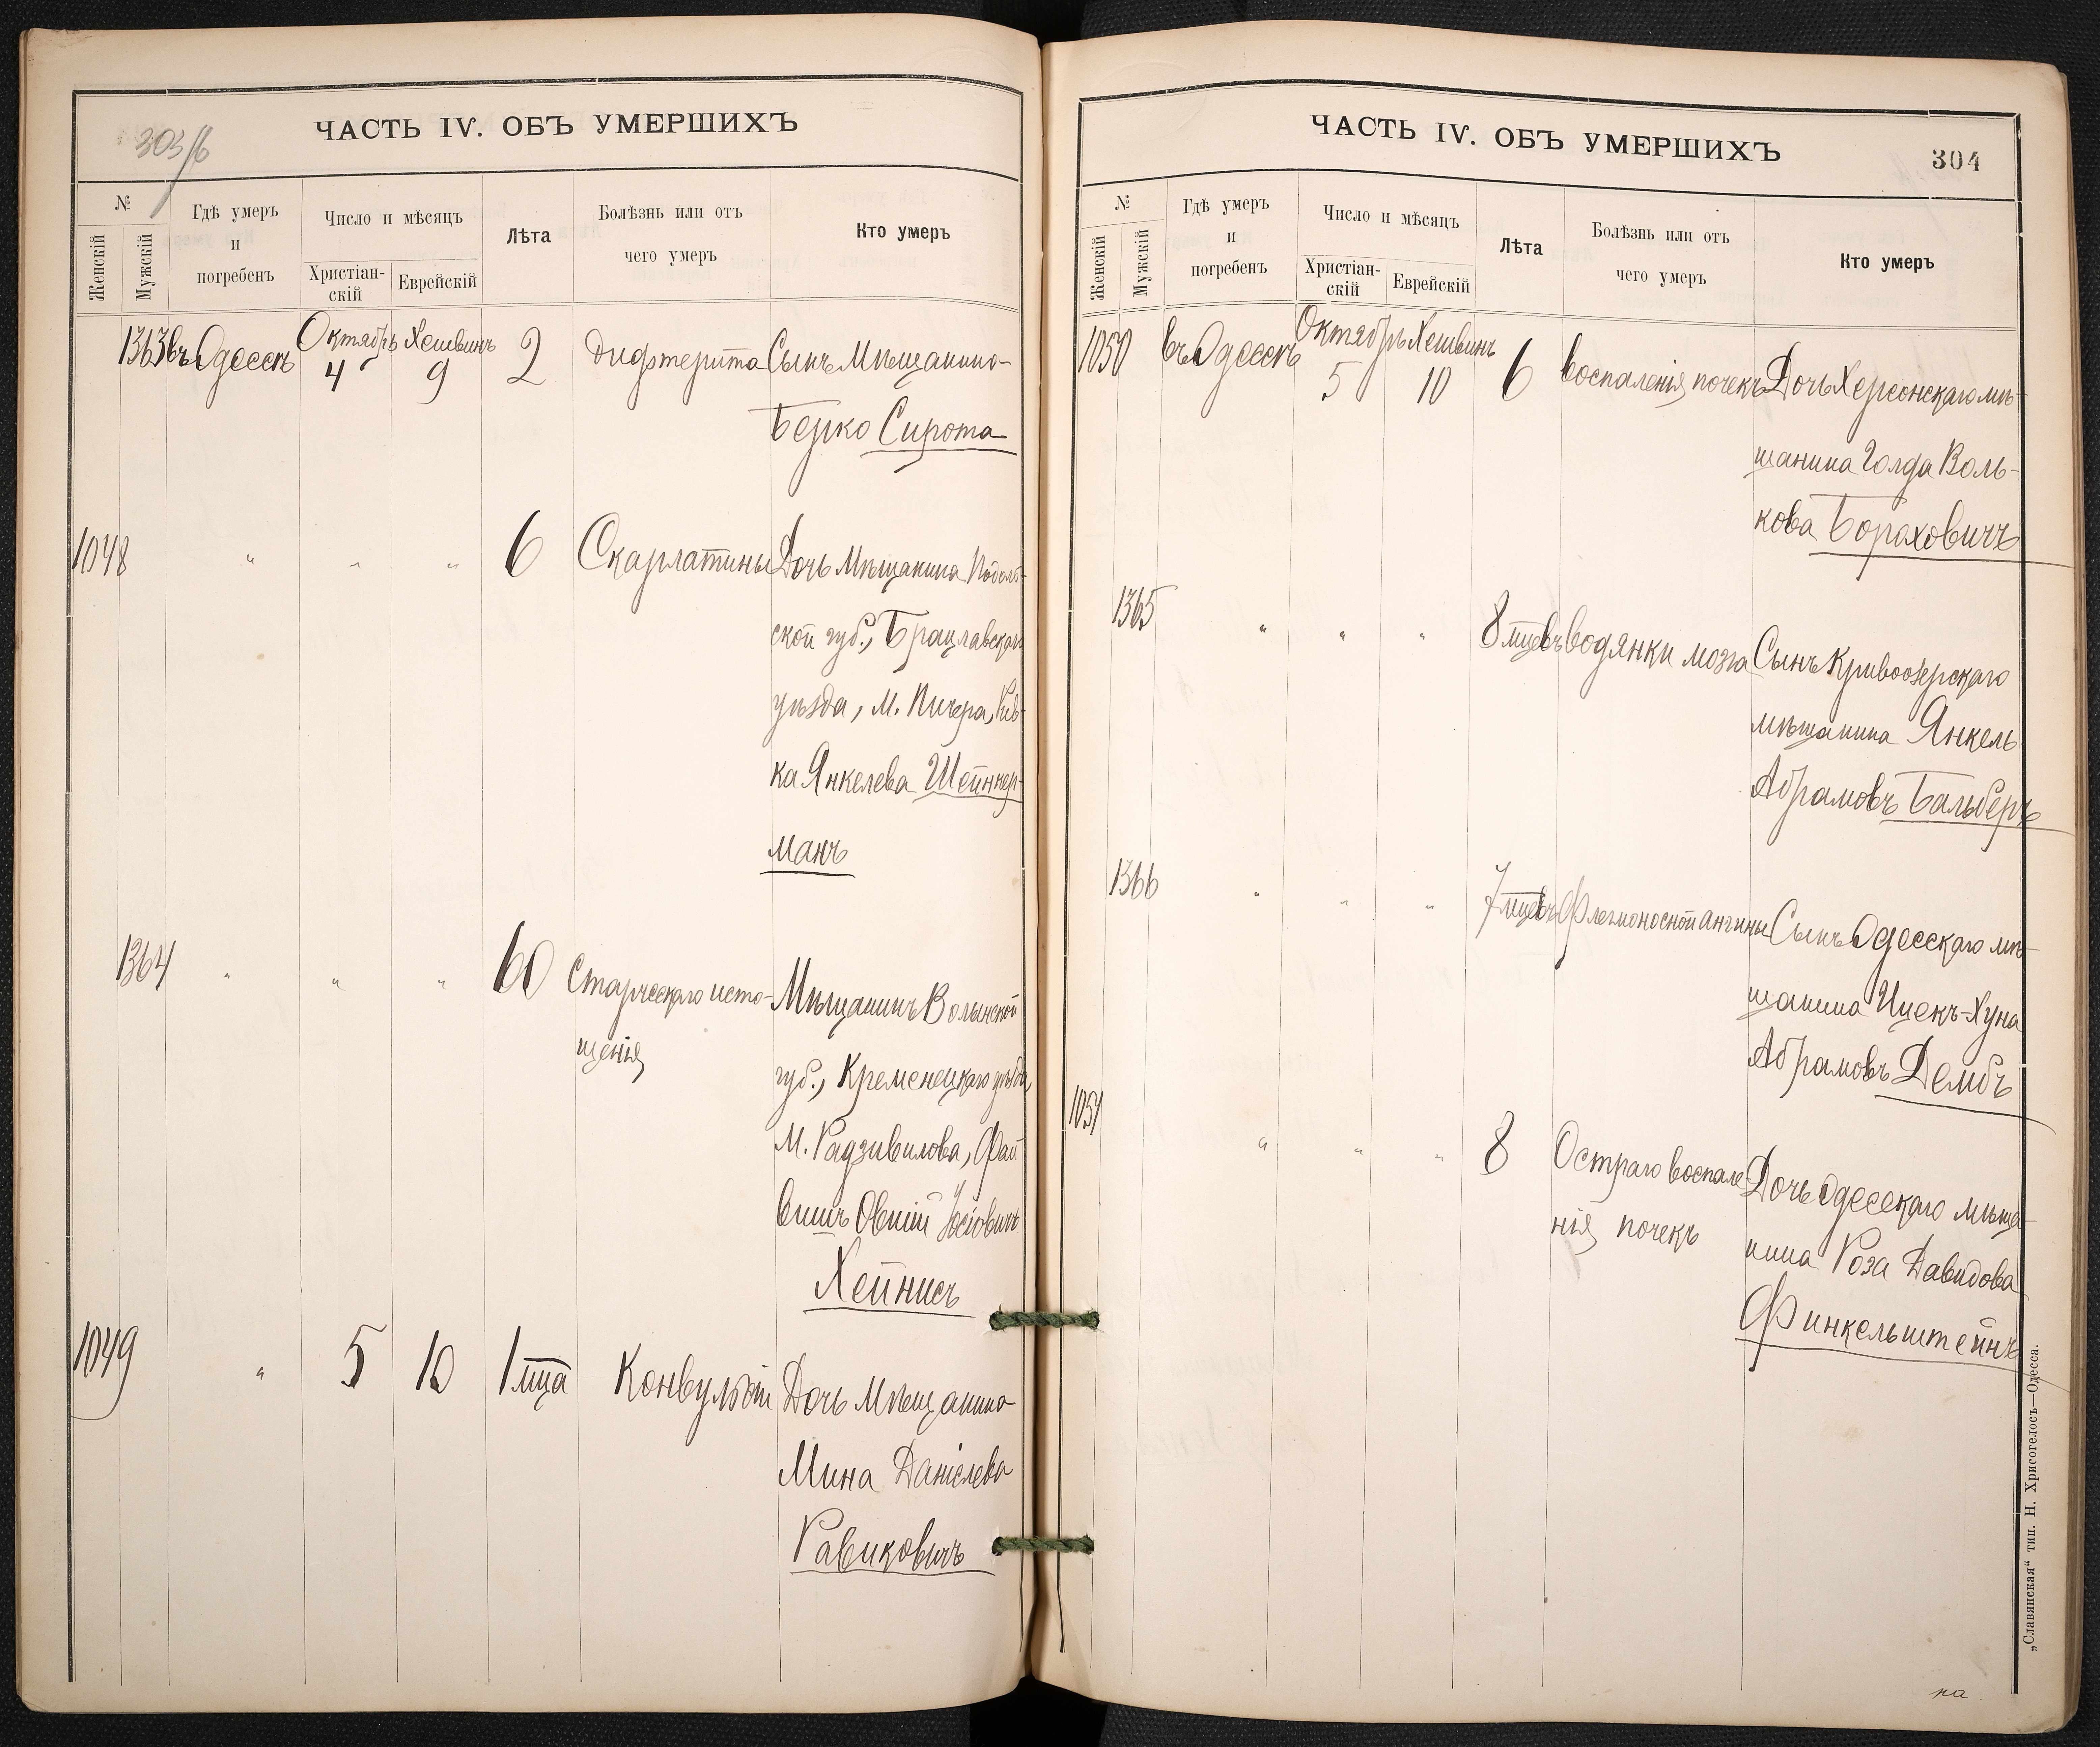 303/б
ЧАСТЬ IV. ОБЪ УМЕРШИХЪ
№
Женскій
Мужскій
Гдѣ умеръ
и
погребенъ
Число и мѣсяцъ
Христіан-
скій
Еврейскій
Лѣта
Болѣзнь или отъ
чего умеръ
Кто умеръ
1363 въ Одессѣ Октябрь 4 Хешвинъ 9 2 дифтерита Сынъ Мѣщанина
Берко Сирота
1048 " " " 6 Скарлатины Дочь Мѣщанина Подоль-
ской губ., Брацлавскаго
уѣзда, М. Пичера, Рив-
ка Янкелева Шейнкер-
манъ
1364 " " " 60 Старческаго исто- Мѣщанинъ Волынской
щенія губ., Кременецкаго уѣзда,
М. Радзивилова, Фай
вишъ Овшій Іосіовичъ
Хейнисъ
1049 " 5 10 1 мца Конвульсій Дочь Мѣщанина
Мина Даніелева
Равиковичъ
ЧАСТЬ IV. ОБЪ УМЕРШИХЪ
304
№
Женскій
Мужскій
Гдѣ умеръ
и
погребенъ
Число и мѣсяцъ
Христіан-
скій
Еврейскій
Лѣта
Болѣзнь или отъ
чего умеръ
Кто умеръ
1050 въ Одессѣ Октябрь 5 Хешвинъ 10 6 воспаленія почекъ Дочь Херсонскаго мѣ-
щанина Голда Воль-
кова Бораховичъ
1365 " " " 8 мцевъ водянки мозга Сынъ Кривоозерскаго
мѣщанина Янкель
Абрамовъ Бальберъ
1366 " " " 7 мцевъ Флегмоносной ангины Сынъ Одесскаго мѣ-
щанина Ицекъ-Хуна
Абрамовъ Дембъ
1051 " " " 8 Остраго воспале- Дочь Одесскаго мѣща-
нія почекъ нина Роза Давидова
Финкельштейнъ
„Славянская“ тип. Н. Хрисогелосъ—Одесса.
на